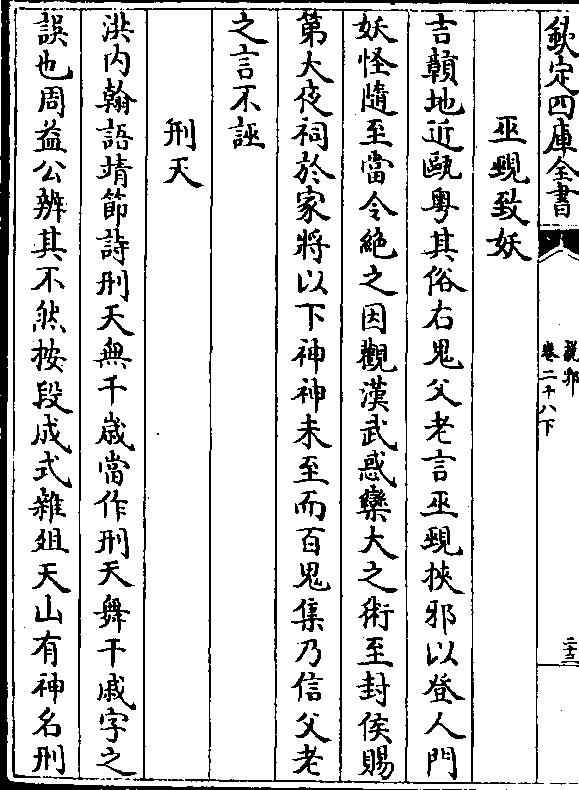 欽定四庫全書
說郛
卷二十八下
二十三
巫覡致妖
吉贛地近甌粤其俗右鬼父老言巫覡挾邪以登人門
妖怪隨至當令絶之因觀漢武惑欒大之術至封侯賜
第大夜祠於家將以下神神未至而百鬼集乃信父老
之言不誣
刑天
洪内翰語靖節詩刑天無千歳當作刑天舞干戚字之
誤也周益公辨其不然按段成式雜俎天山有神名刑